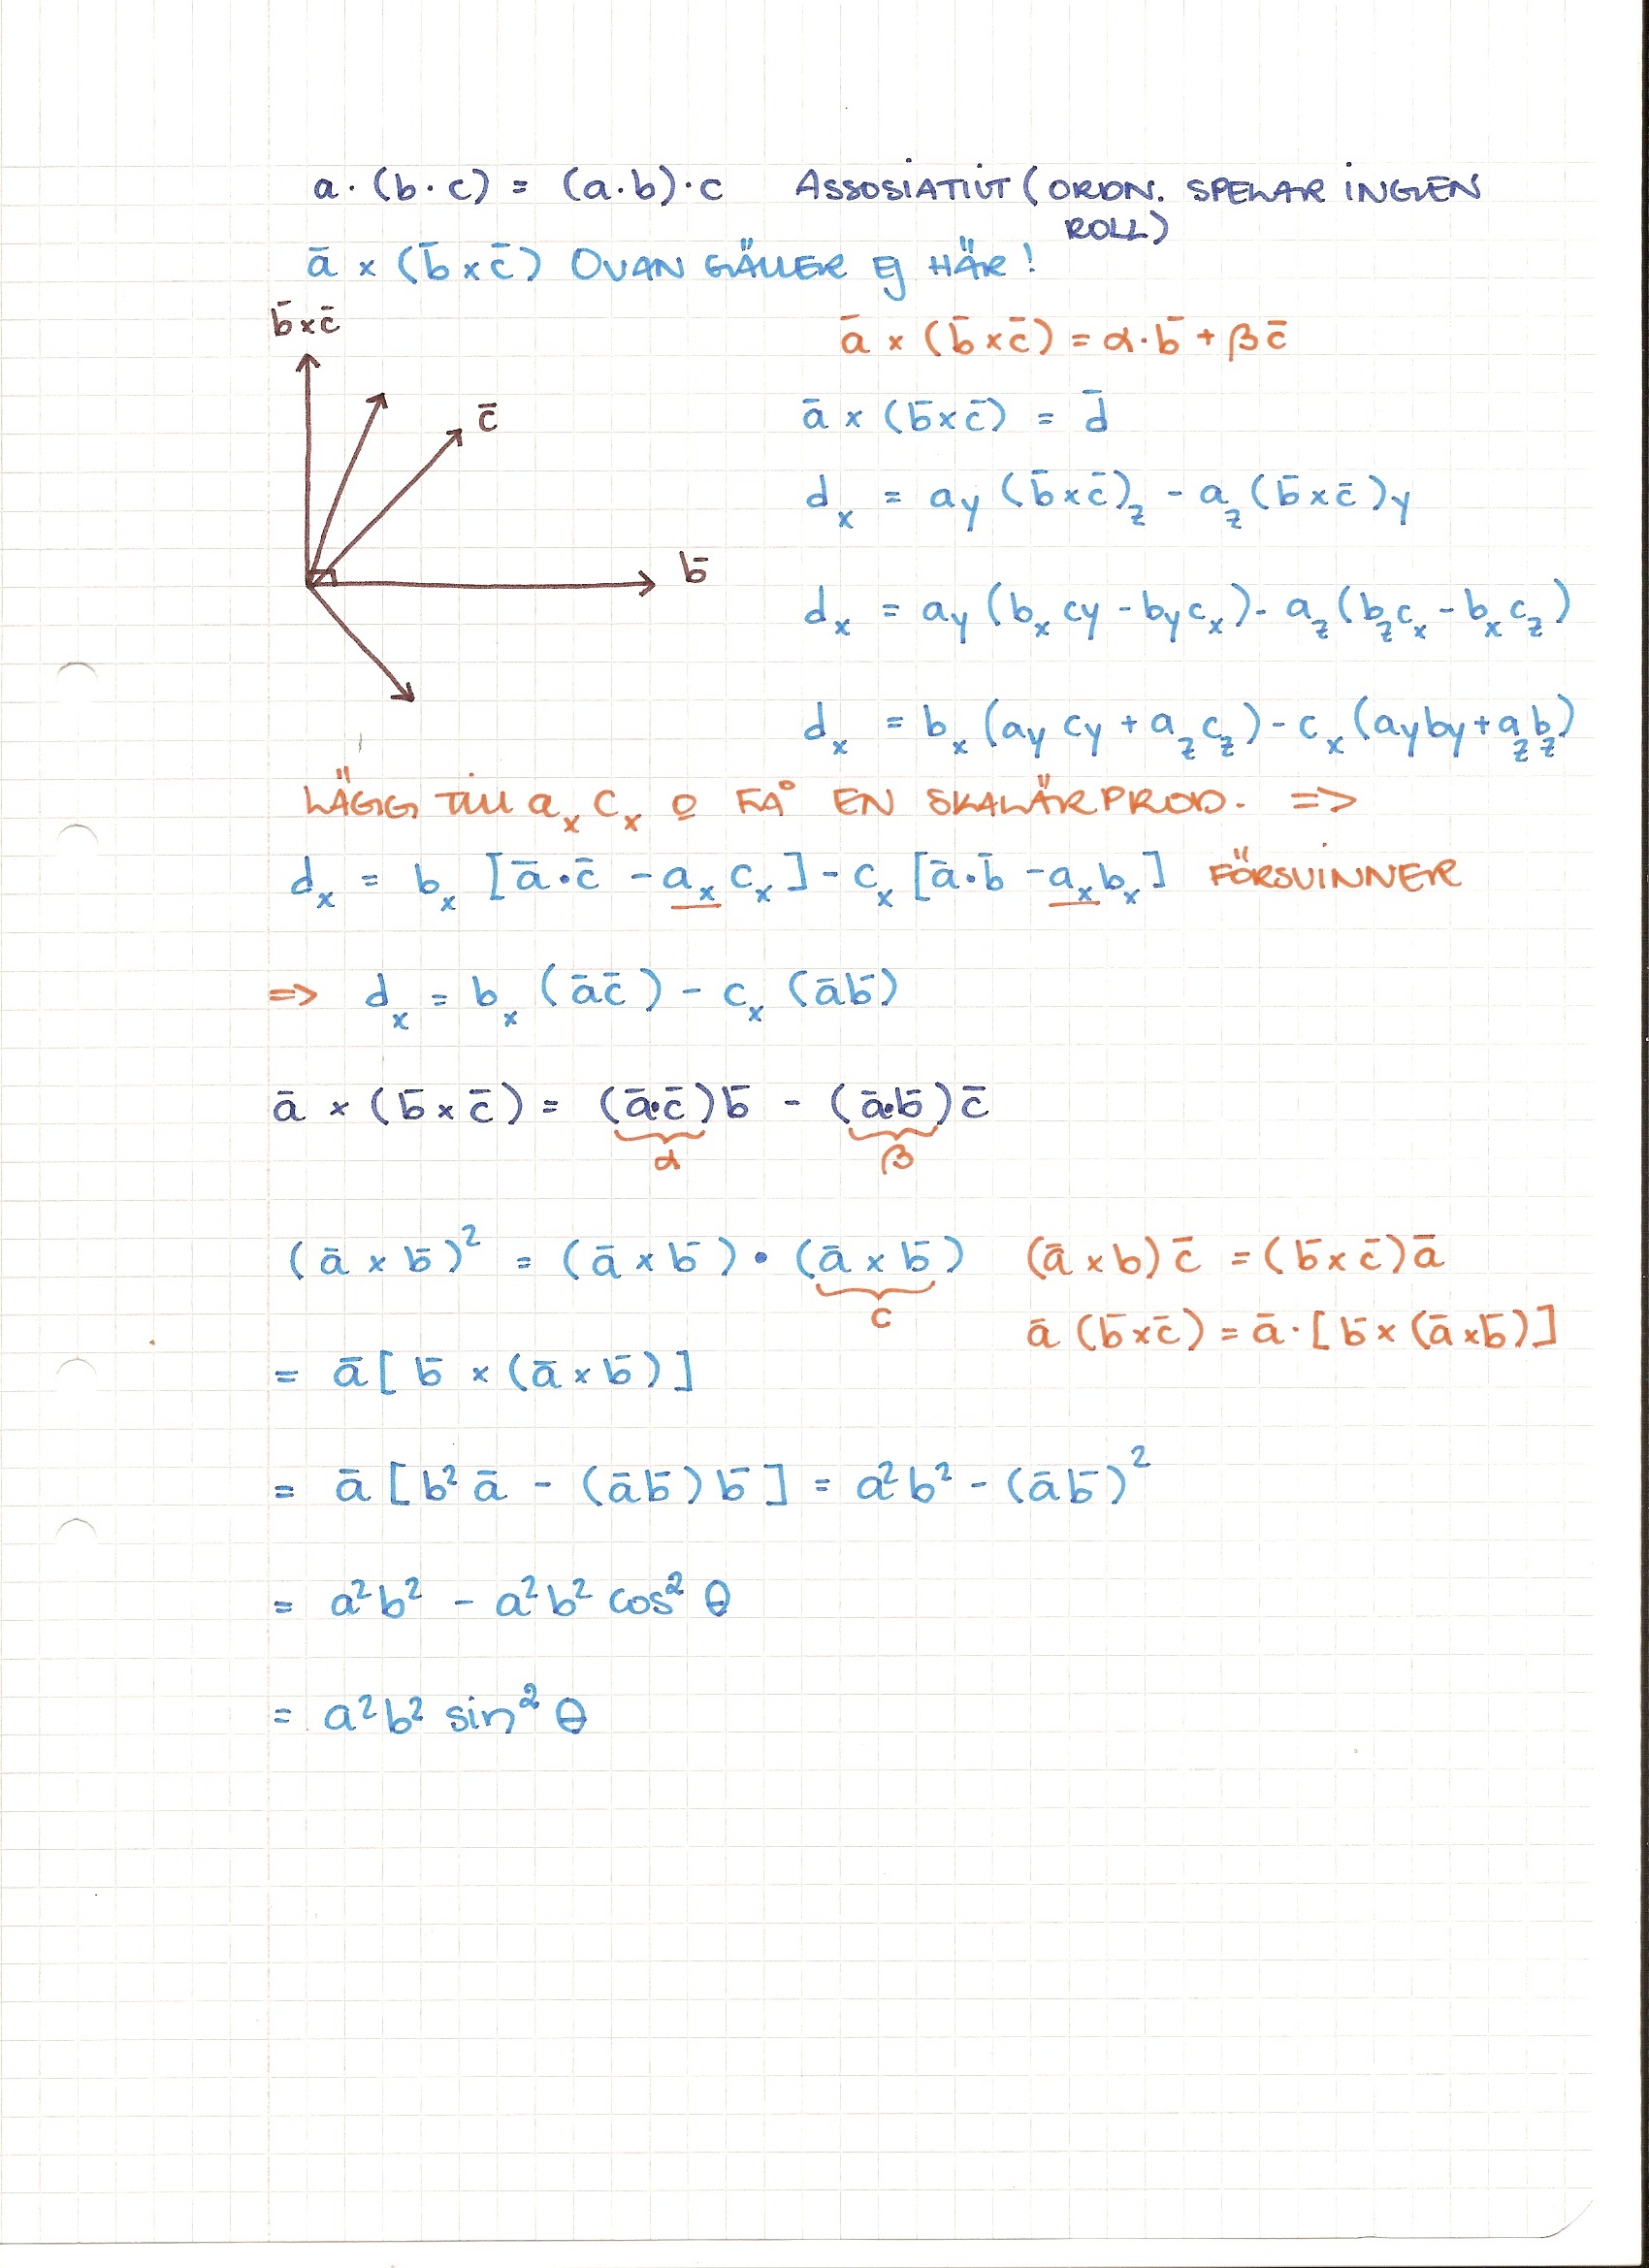 a · (b · c) = (a · b) · c ASSOSIATIVT (ORDN. SPELAR INGEN
ROLL)
ā × (b̄ × c̄) OVAN GÄLLER EJ HÄR!
b̄ × c̄
ā × (b̄ × c̄) = α · b̄ + β c̄
c̄
ā × (b̄ × c̄) = d̄
d_x = a_y (b̄ × c̄)_z - a_z (b̄ × c̄)_y
b̄
d_x = a_y (b_x c_y - b_y c_x) - a_z (b_z c_x - b_x c_z)
d_x = b_x (a_y c_y + a_z c_z) - c_x (a_y b_y + a_z b_z)
LÄGG TILL a_x c_x o FÅ EN SKALÄRPROD. =>
d_x = b_x [ā · c̄ - a_x c_x] - c_x [ā · b̄ - a_x b_x] FÖRSVINNER
=> d_x = b_x (ā c̄) - c_x (ā b̄)
ā × (b̄ × c̄) = (ā · c̄) b̄ - (ā · b̄) c̄
α β
(ā × b̄)² = (ā × b̄) · (ā × b̄) (ā × b) c̄ = (b̄ × c̄) ā
c
ā (b̄ × c̄) = ā · [b̄ × (ā × b̄)]
= ā [b̄ × (ā × b̄)]
= ā [b² ā - (ā b̄) b̄] = a² b² - (ā b̄)²
= a² b² - a² b² cos² θ
= a² b² sin² θ